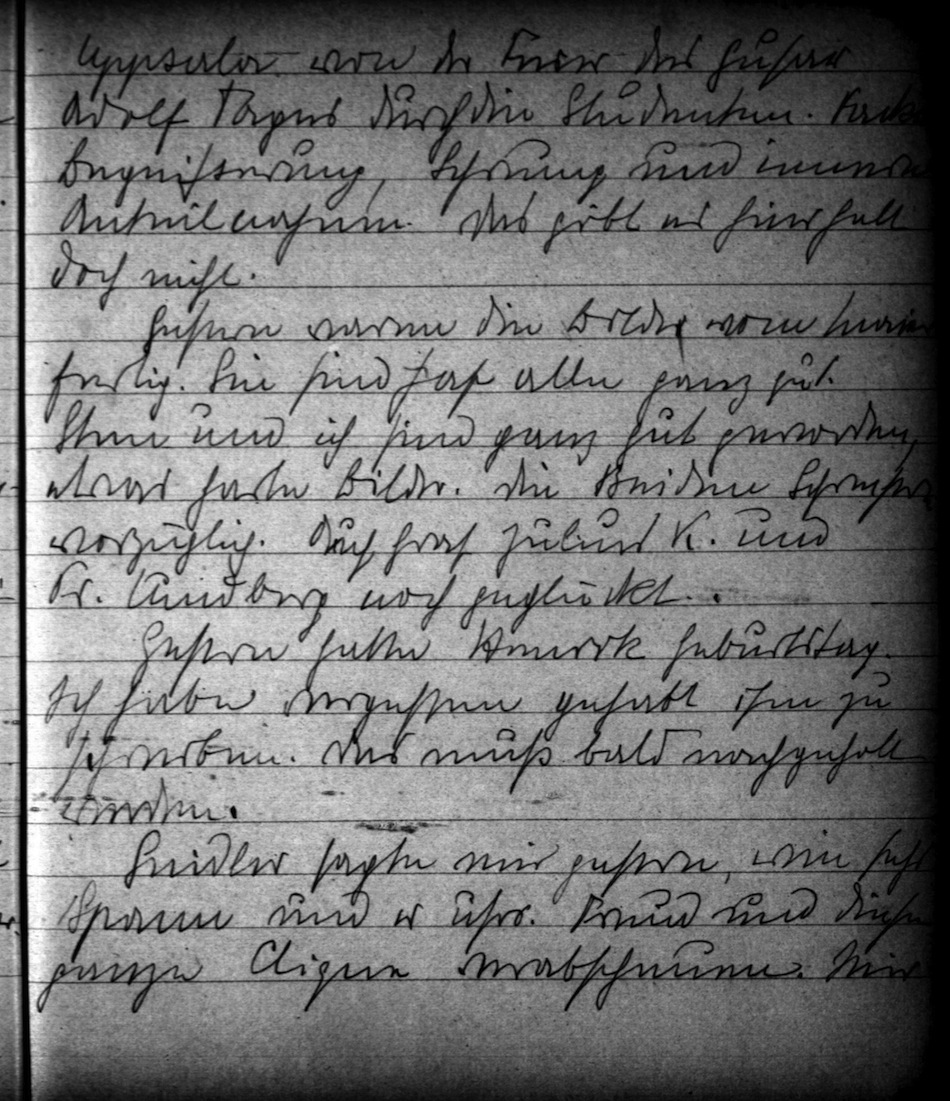 Uppsala von der Feier des Gustav
Adolf Tages durch die Studenten. Fackeln
Begeisterung, Schwung und innere
Anteilnahme. Das gibt es hier halt
doch nicht.
Gestern waren die Bilder vom
fertig. Sie sind fast alle ganz gut.
Sten und ich sind ganz gut geworden,
etwas harte Bilder. Die Beiden Schwestern
vorzüglich. Auch Graf Julius K. und
Fr. Lindberg noch geglückt.
Gestern hatte Geburtstag.
Ich habe vergessen gehabt ihm zu
schreiben. Das muß bald nachgeholt
werden.
Seidler sagte mir gestern, wie sehr
Spann und er Frend und diese
ganze Clique verabscheuen. Mir